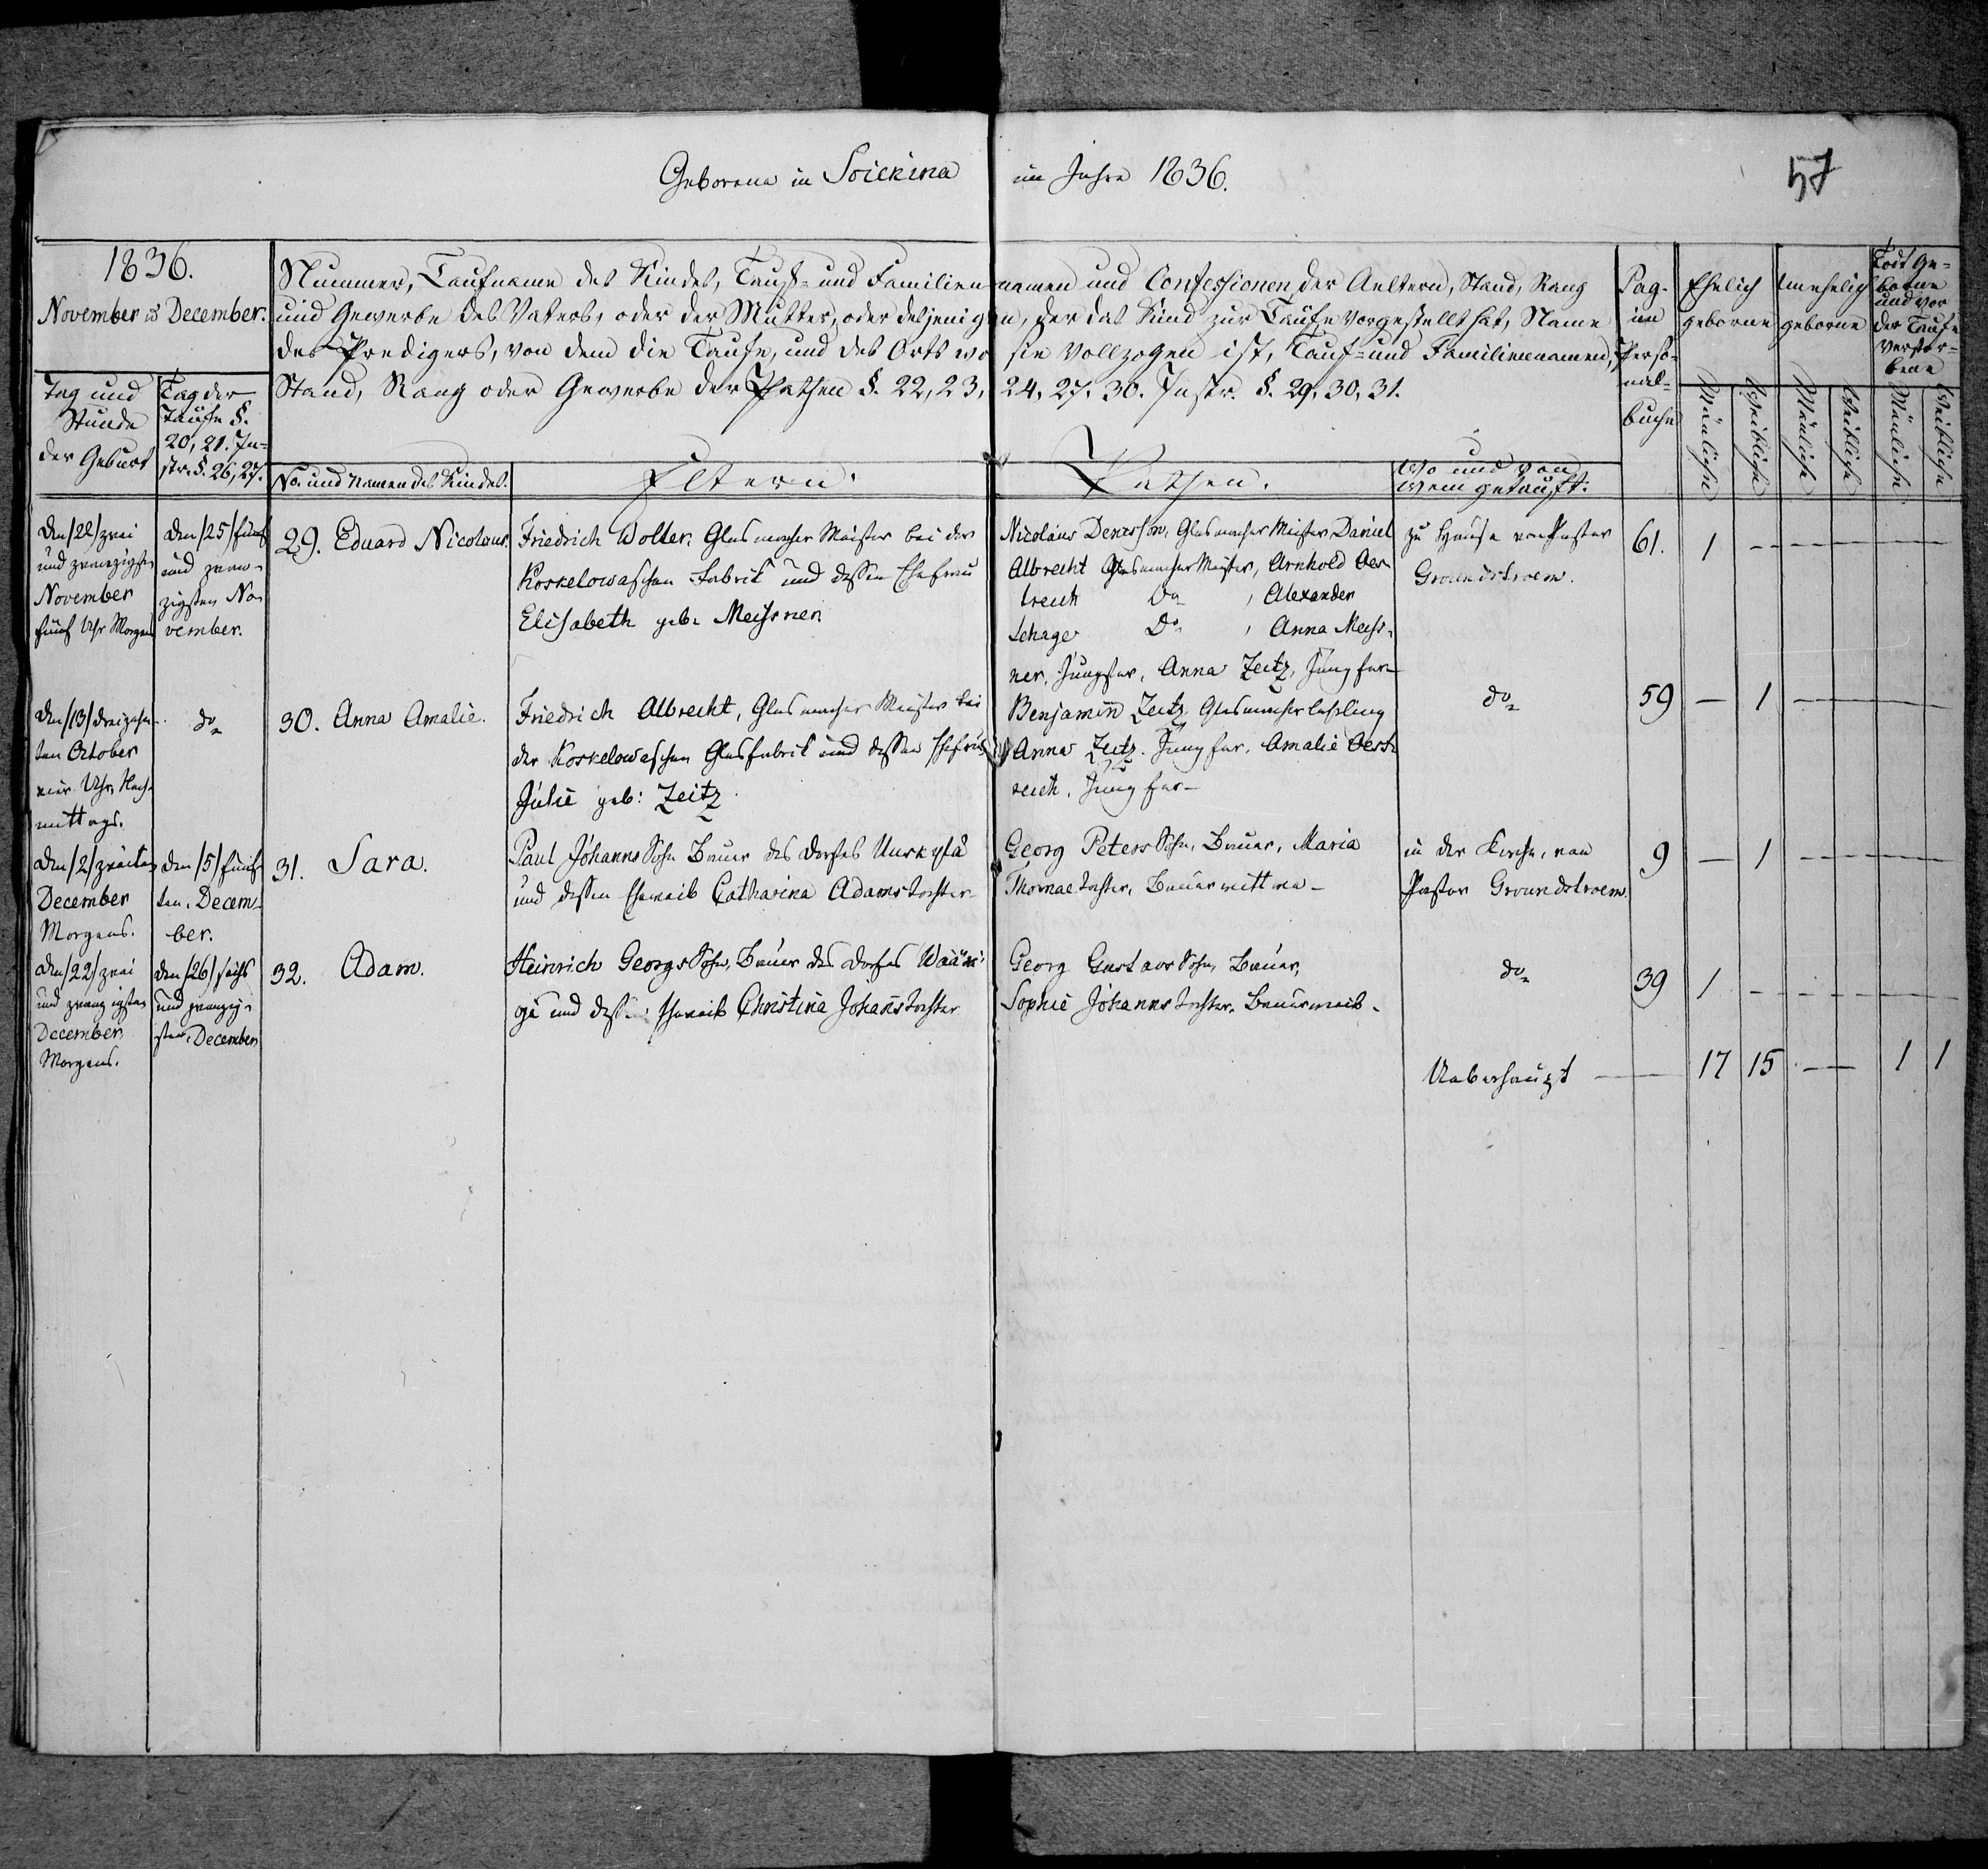 Geborene in Soickina im Jahre 1836.
57
1836.
November u. December.
Tag und
Stunde
der Geburt
Tag der
Taufe §.
20, 21. In-
str. §. 26, 27.
Nummer, Taufname des Kindes, Tauf- und Familiennamen und Confessionen der Aeltern, Stand, Rang
und Gewerbe des Vaters, oder der Mutter, oder desjenigen, der das Kind zur Taufe vorgestellt hat, Name
des Predigers, von dem die Taufe, und des Orts wo sie vollzogen ist, Tauf- und Familiennamen,
Stand, Rang oder Gewerbe der Pathen §. 22, 23, 24, 27, 30. Instr. §. 29, 30, 31.
No. und Namen des Kindes.
Eltern.
Pathen.
Wo und von
wem getauft.
Pag.
im
Perso-
nal-
buche
Ehelich
geborne
Männliche
Weibliche
Unehelich
geborne
Männliche
Weibliche
Todt Ge-
borne
und vor
der Taufe
verstor-
bene
Männliche
Weibliche
den /22/ zwei
und zwanzigsten
November
fünf Uhr Morgens
den /25/ fünf
und zwan-
zigsten No-
vember.
29. Eduard Nicolaus.
Friedrich Wolter, Glasmacher Meister bei der
Koskelowaschen Fabrik und dessen Ehefrau
Elisabeth geb. Meissner
Nicolaus Glasmacher Meister Daniel
Albrecht Glasmacher Meister, Arnhold Oest-
reich Do , Alexander
Schage Do , Anna Meiss-
ner, Jungfer, Anna Zeitz, Jungfer
zu Hause von Pastor
Groundstroem.
61. 1 — — — — —
den /13/ dreizehn-
ten October
vier Uhr Nach-
mittags.
do
30. Anna Amalie.
Friedrich Albrecht, Glasmacher Meister bei
der Koskelowaschen Glasfabrik und dessen Ehefrau
Julie geb: Zeitz
Benjamin Zeitz Glasmacherlehrling
Anna Zeitz. Jungfer. Amalie Oest-
reich, Jungfer
do
59 — 1 — — — —
den /2/ zweiten
December
Morgens.
den /5/ fünf-
ten Decem-
ber.
31. Sara.
Paul Johanns Sohn Bauer des Dorfes Uuskylä
und dessen Eheweib Catharina Adamstochter
Georg Peters Sohn, Bauer, Maria
Thomaetochter, Bauerwittwe
in der Kirche, von
Pastor Groundstroem.
9 — 1 — — — —
den /22/ zwei
und zwanzigsten
December
Morgens.
den /26/ sechs
und zwanzig-
sten December
32. Adam.
Heinrich Georgs Sohn, Bauer des Dorfes
und dessen Eheweib Christina Johanstochter
Georg Gustavs Sohn, Bauer,
Sophie Johannstochter, Bauerweib
do
39 1 — — — — —
Ueberhaupt — 17 15 — — 1 1